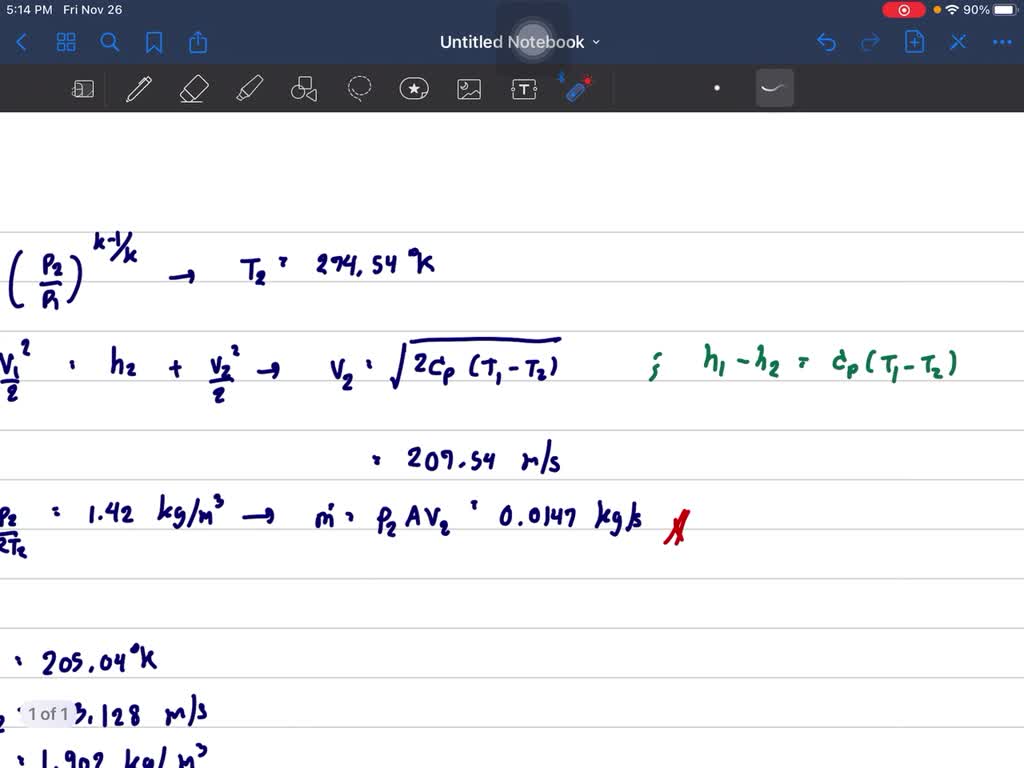 5:14 PM Fri Nov 26 90%
Untitled Notebook
(P2/P1)^k-1/k → T2 = 274.54 °K
V1^2/2 = h2 + V2^2/2 → V2 = √2Cp (T1-T2) ; h1-h2 = Cp(T1-T2)
= 207.54 m/s
P2/RT2 = 1.42 kg/m^3 → ṁ = ρ2 A V2 = 0.0147 kg/s
= 205.04 °K
1 of 1 3.128 m/s
= 1.902 kg/m^3